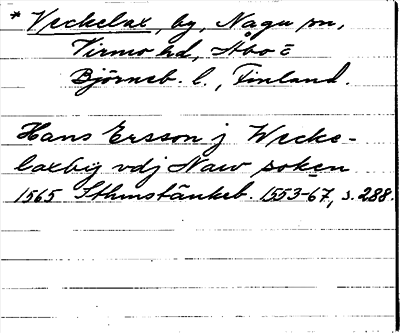 * Veckelax, by, Nagu sn,
Virmo hd, Åbo o
Björneb. l., Finland.
Hans Ersson j Wecke-
laxby vdj Naw sokn
1565 Sthmstänkeb. 1553-67, s. 288.